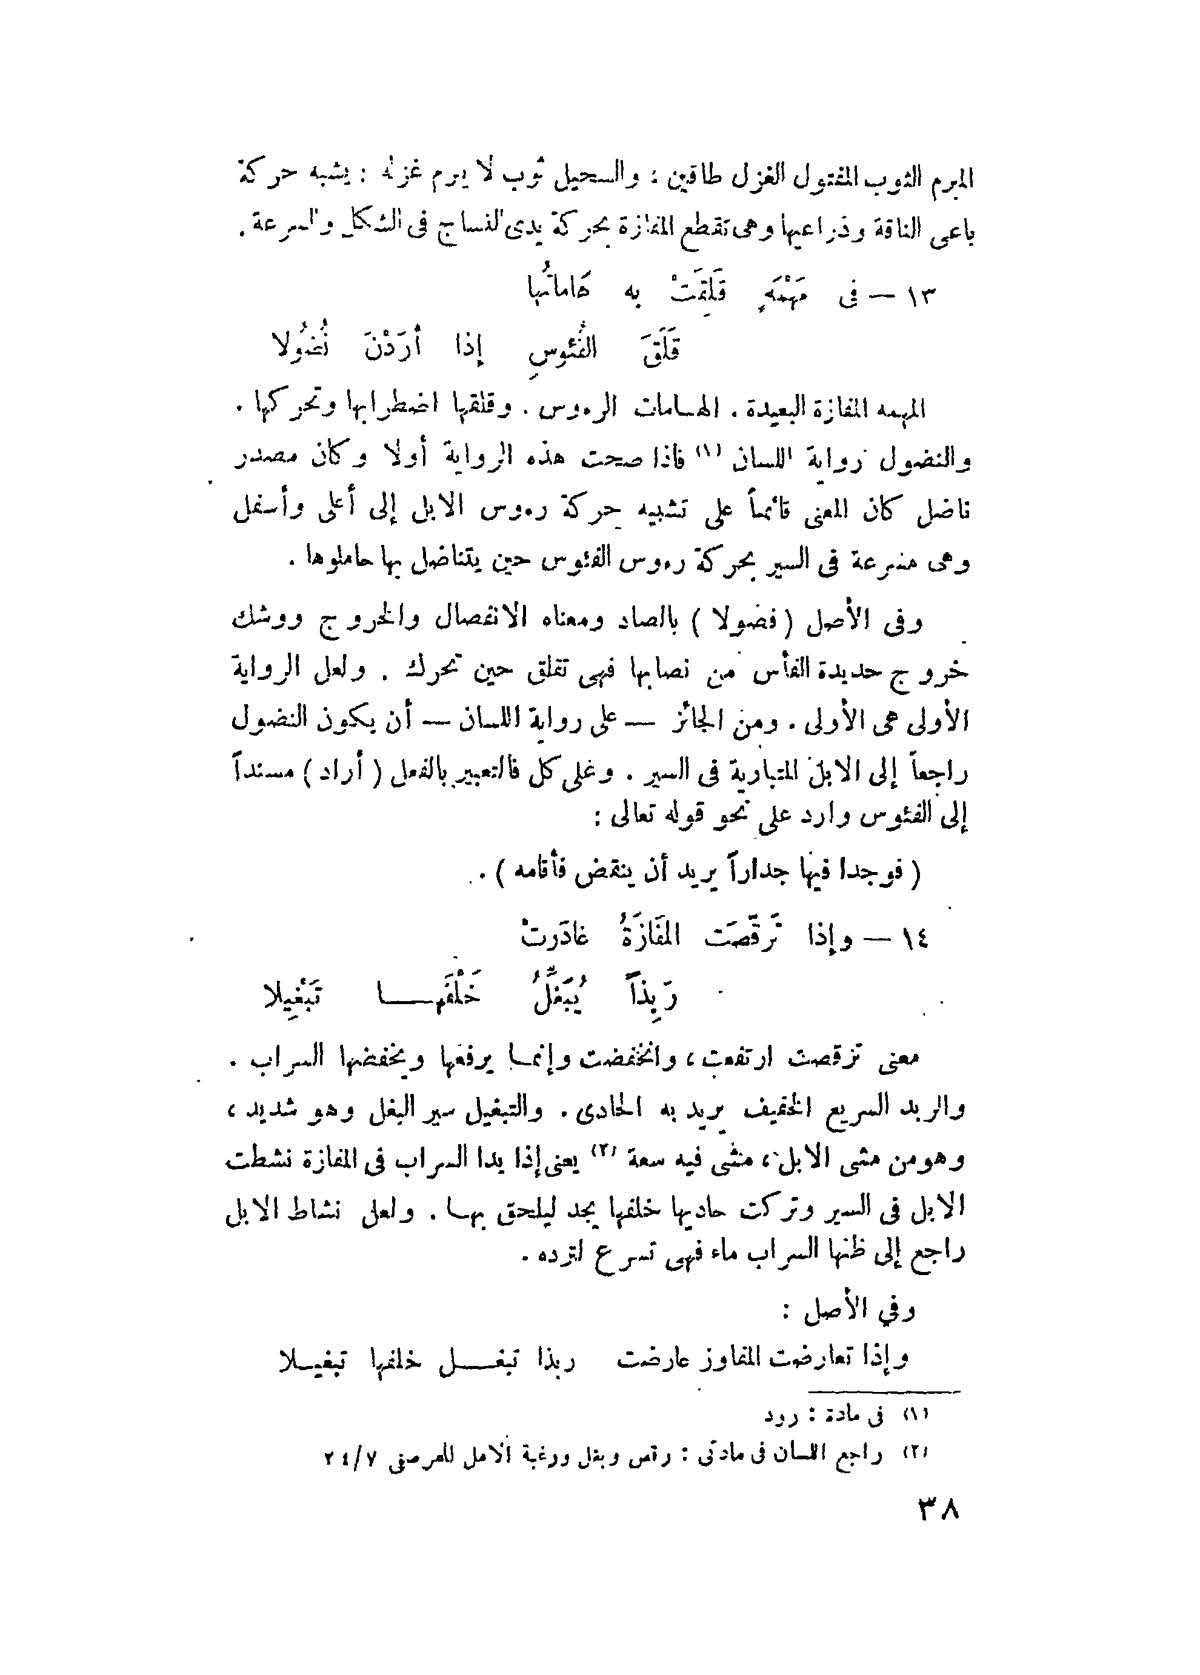 المبرم الثوب المفتول الغزل طاقين ؛ والسحيل ثوب لا يبرم غزله : يشبه حركة
باعى الناقة وذراعيها وهى تقطع المفازة بحركة يدى النساج فى الشكل والسرعة .
١٣ — فى مَهْمَهٍ قَلِقَتْ به هَاماتُها
قَلَقَ الفُئوسِ إذا أرَدْنَ نُضُولا
المهمه المفازة البعيدة . الهامات الرءوس . وقلقها اضطرابها وتحركها .
والنضول رواية اللسان (١) فاذا صحت هذه الرواية أولا وكان مصدر
ناضل كان المعنى قائماً على تشبيه حركة رءوس الابل إلى أعلى وأسفل
وهى مسرعة فى السير بحركة رءوس الفئوس حين يتناضل بها حاملوها .
وفى الأصل ( فضولا ) بالصاد ومعناه الانفصال والخروج ووشك
خروج حديدة الفأس من نصابها فهى تقلق حين تحرك . ولعل الرواية
الأولى هى الأولى . ومن الجائز — على رواية اللسان — أن يكون النضول
راجعاً إلى الابل المتبارية فى السير . وعلى كل فالتعبير بالفعل ( أراد ) مسنداً
إلى الفئوس وارد على نحو قوله تعالى :
( فوجدا فيها جداراً يريد أن ينقض فأقامه ) .
١٤ — وإذا تَرَقّصَت المَفَازَةُ غادَرتْ
رَبِذاً يُبَغِّلُ خَلْفَهـــا تَبْغِيلا
معنى ترقصت ارتفعت ، وانخفضت وإنما يرفعها ويخفضها السراب .
والربد السريع الخفيف يريد به الحادى . والتبغيل سير البغل وهو شديد ،
وهو من مشى الابل ، مشى فيه سعة (٢) يعنى إذا بدا السراب فى المفازة نشطت
الابل فى السير وتركت حاديها خلفها يجد ليلحق بها . ولعل نشاط الابل
راجع إلى ظنها السراب ماء فهى تسرع لترده .
وفي الأصل :
وإذا تعارضت المفاوز عارضت ربذا تبغـــل خلفها تبغيــلا
(١) فى مادة : رود
(٢) راجع اللسان فى مادتى : رقص وبغل ورغبة الآمل للمرصفى ٢٤/٧
٣٨